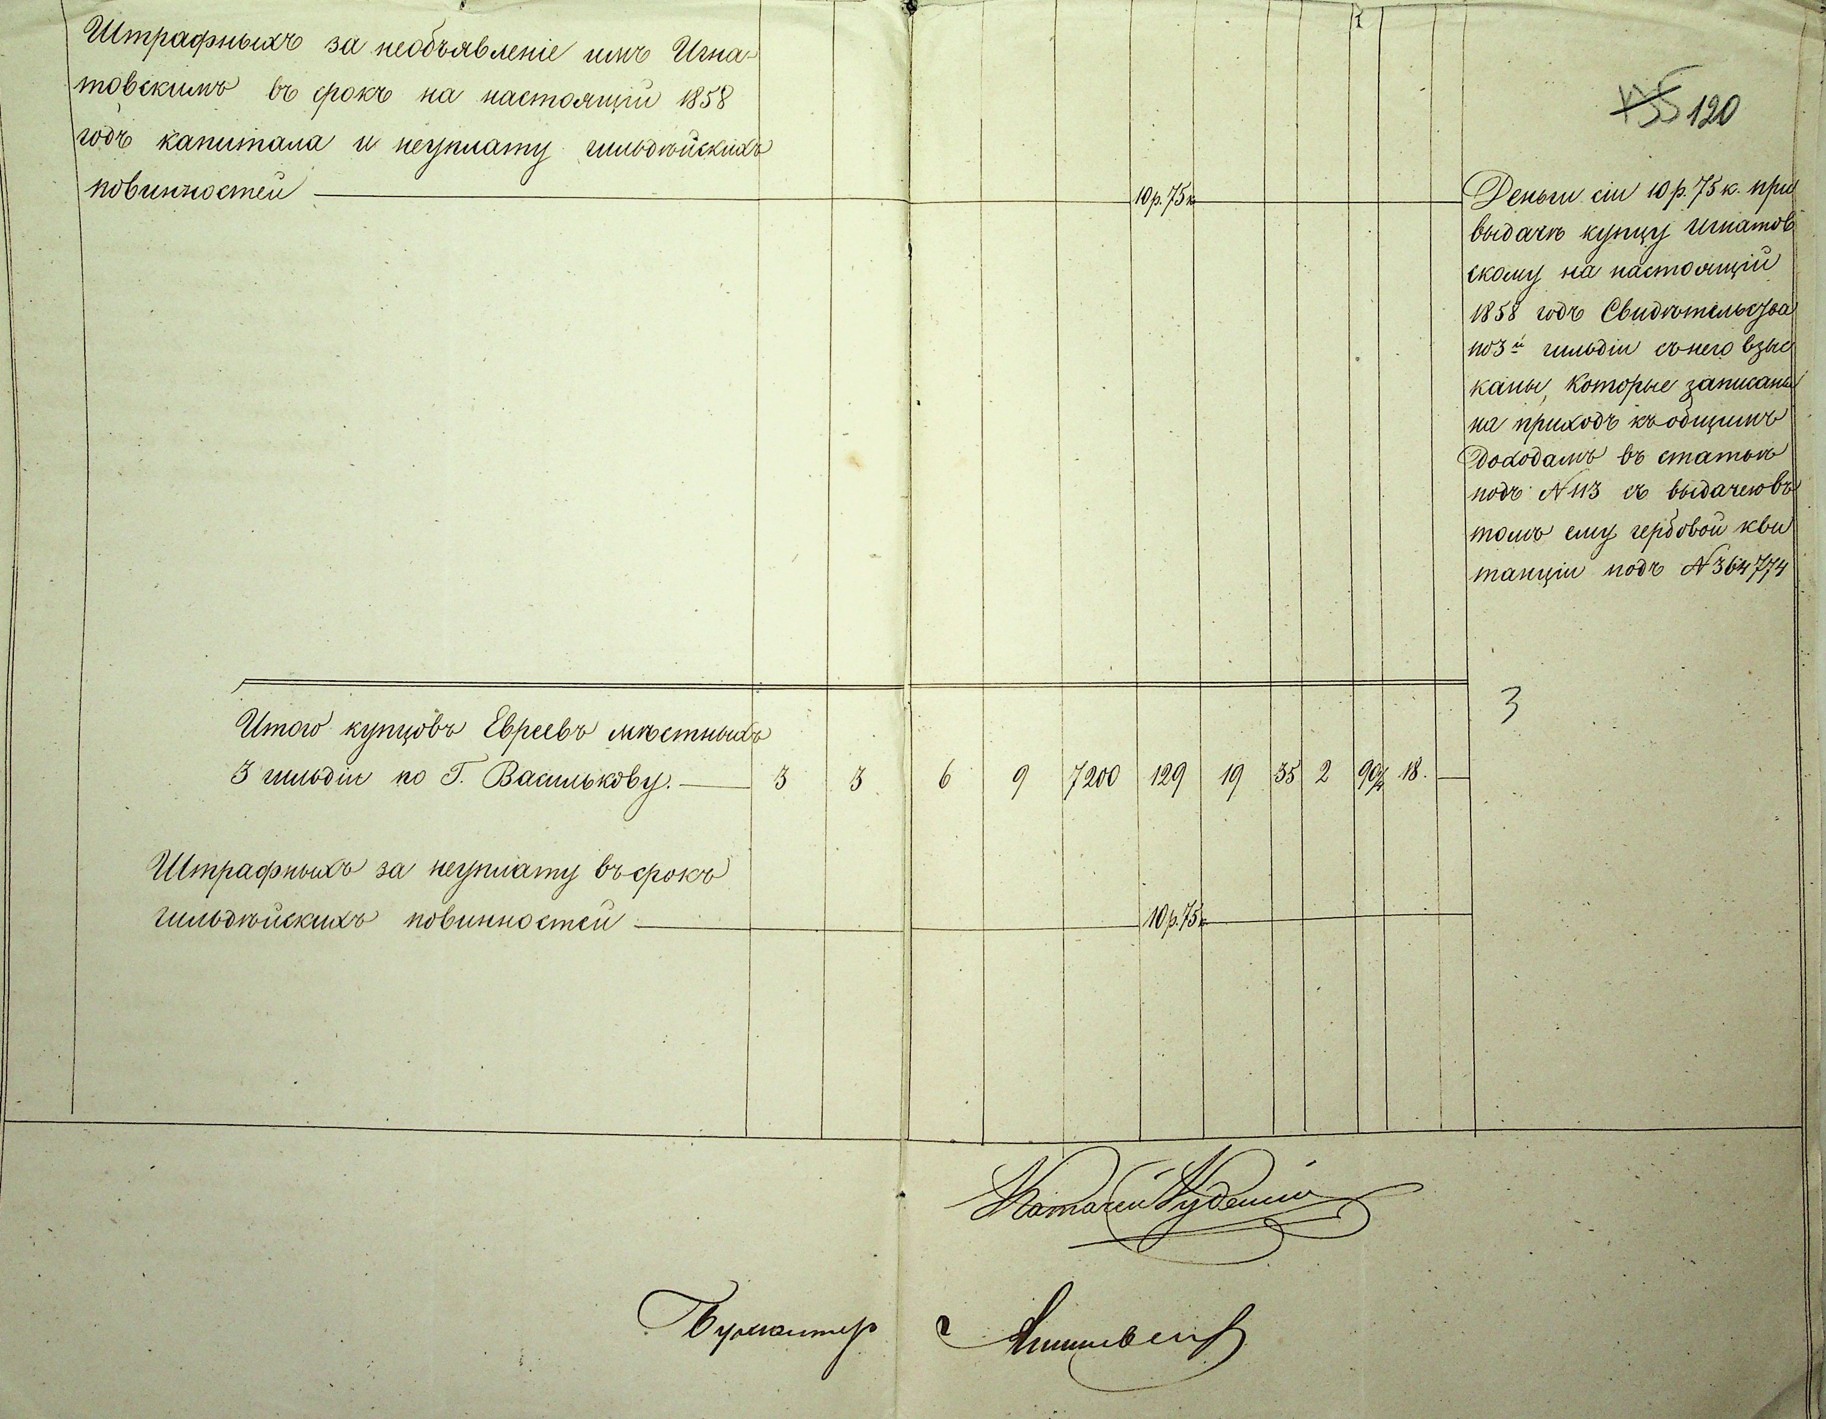 Штрафныхъ за необъявленіе имъ Игна-
товскимъ въ срокъ на настоящій 1858
годъ капитала и неуплату гильдѣйскихъ
повинностей 10 р. 75 к
120
Деньги сіи 10 р. 75 к. при
выдачѣ купцу Игнатов
скому на настоящій
1858 годъ Свидѣтельства
по 3й гильдіи съ него взыс
каны, которые записаны
на приходъ къ общимъ
доходамъ въ статьѣ
подъ N 113 съ выдачею въ
томъ ему гербовой кви
танціи подъ N 364774
3
Итого купцовъ Евреевъ мѣстныхъ
3 гильдіи по Г. Василькову. 3 3 6 9 7200 129 19 35 2 90¾ 18.
Штрафныхъ за неуплату въ срокъ
гильдѣйскихъ повинностей 10 р. 75 к
Бухгалтеръ